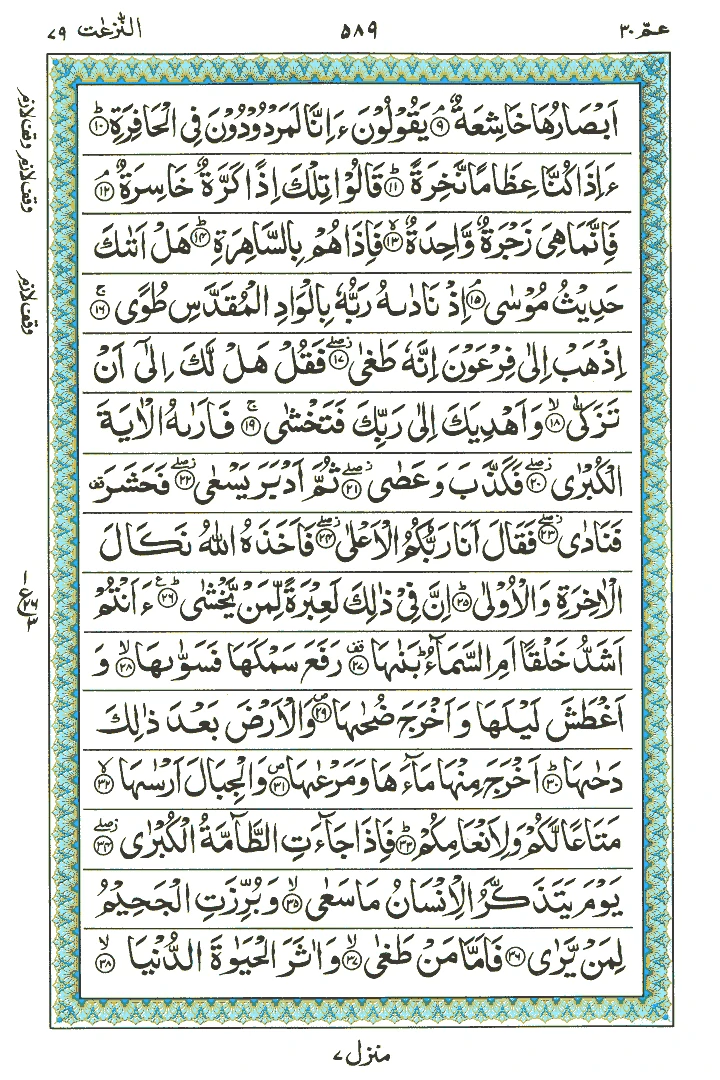 عمّ ٣٠ ٥٨٩ النّٰزعٰت ٧٩
اَبْصَارُهَا خَاشِعَةٌ ۘ ﴿٩﴾ يَقُوْلُوْنَ ءَاِنَّا لَمَرْدُوْدُوْنَ فِى الْحَافِرَةِ ؕ ﴿١٠﴾
ءَاِذَا كُنَّا عِظَامًا نَّخِرَةً ؕ ﴿١١﴾ قَالُوْا تِلْكَ اِذًا كَرَّةٌ خَاسِرَةٌ ۘ ﴿١٢﴾
فَاِنَّمَا هِىَ زَجْرَةٌ وَّاحِدَةٌ ۙ ﴿١٣﴾ فَاِذَا هُمْ بِالسَّاهِرَةِ ؕ ﴿١٤﴾ هَلْ اَتٰىكَ
حَدِيْثُ مُوْسٰى ۘ ﴿١٥﴾ اِذْ نَادٰىهُ رَبُّهٗ بِالْوَادِ الْمُقَدَّسِ طُوًى ۚ ﴿١٦﴾
اِذْهَبْ اِلٰى فِرْعَوْنَ اِنَّهٗ طَغٰى ۖ ﴿١٧﴾ فَقُلْ هَلْ لَّكَ اِلٰٓى اَنْ
تَزَكّٰى ۙ ﴿١٨﴾ وَاَهْدِيَكَ اِلٰى رَبِّكَ فَتَخْشٰى ۚ ﴿١٩﴾ فَاَرٰىهُ الْاٰيَةَ
الْكُبْرٰى ۖ ﴿٢٠﴾ فَكَذَّبَ وَعَصٰى ۖ ﴿٢١﴾ ثُمَّ اَدْبَرَ يَسْعٰى ۖ ﴿٢٢﴾ فَحَشَرَ قف
فَنَادٰى ۖ ﴿٢٣﴾ فَقَالَ اَنَا رَبُّكُمُ الْاَعْلٰى ۖ ﴿٢٤﴾ فَاَخَذَهُ اللّٰهُ نَكَالَ
الْاٰخِرَةِ وَالْاُوْلٰى ؕ ﴿٢٥﴾ اِنَّ فِىْ ذٰلِكَ لَعِبْرَةً لِّمَنْ يَّخْشٰى ؕ ع ﴿٢٦﴾ ءَاَنْتُمْ
اَشَدُّ خَلْقًا اَمِ السَّمَآءُ ؕ بَنٰىهَا قف ﴿٢٧﴾ رَفَعَ سَمْكَهَا فَسَوّٰىهَا ۙ ﴿٢٨﴾ وَ
اَغْطَشَ لَيْلَهَا وَاَخْرَجَ ضُحٰىهَا ص ﴿٢٩﴾ وَالْاَرْضَ بَعْدَ ذٰلِكَ
دَحٰىهَا ؕ ﴿٣٠﴾ اَخْرَجَ مِنْهَا مَآءَهَا وَمَرْعٰىهَا ص ﴿٣١﴾ وَالْجِبَالَ اَرْسٰىهَا ۙ ﴿٣٢﴾
مَتَاعًا لَّكُمْ وَلِاَنْعَامِكُمْ ؕ ﴿٣٣﴾ فَاِذَا جَآءَتِ الطَّآمَّةُ الْكُبْرٰى ۖ ﴿٣٤﴾
يَوْمَ يَتَذَكَّرُ الْاِنْسَانُ مَا سَعٰى ۙ ﴿٣٥﴾ وَبُرِّزَتِ الْجَحِيْمُ
لِمَنْ يَّرٰى ﴿٣٦﴾ فَاَمَّا مَنْ طَغٰى ۙ ﴿٣٧﴾ وَاٰثَرَ الْحَيٰوةَ الدُّنْيَا ۙ ﴿٣٨﴾
وقف لازم
وقف لازم
وقف لازم
١
ع ٢٦
٣
منزل ٧